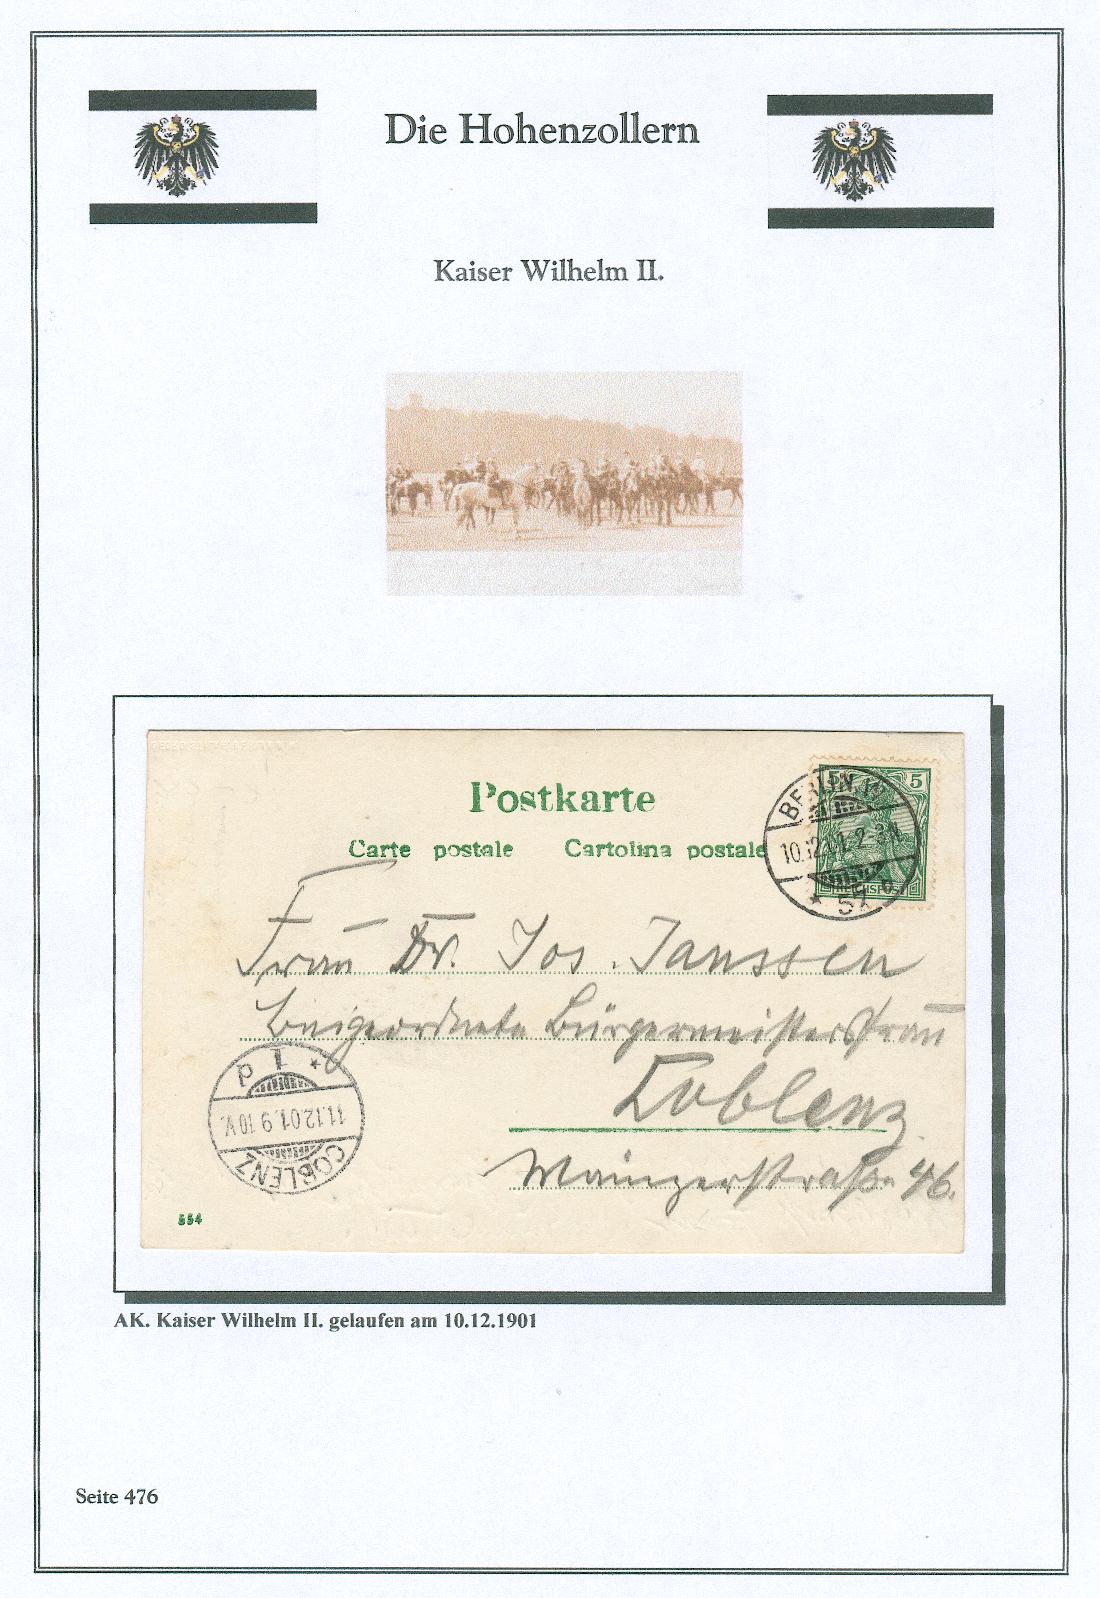 Die Hohenzollern
Kaiser Wilhelm II.
Postkarte
Carte postale Cartolina postale
5 5
REICHSPOST
BERLIN W
10.12.01. 2-3N.
* 57 o
Frau Dr. Jos. Janssen
Beigeordnete Bürgermeistersfrau
Coblenz
Mainzerstraße 46.
COBLENZ
11.12.01. 9-10V.
* 1 d
554
AK. Kaiser Wilhelm II. gelaufen am 10.12.1901
Seite 476